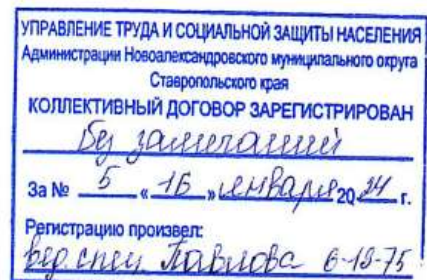 УПРАВЛЕНИЕ ТРУДА И СОЦИАЛЬНОЙ ЗАЩИТЫ НАСЕЛЕНИЯ
Администрации Новоалександровского муниципального округа
Ставропольского края
КОЛЛЕКТИВНЫЙ ДОГОВОР ЗАРЕГИСТРИРОВАН
без замечаний
За № 5 «16» января 2024 г.
Регистрацию произвел:
вед. спец Павлова 6-19-75